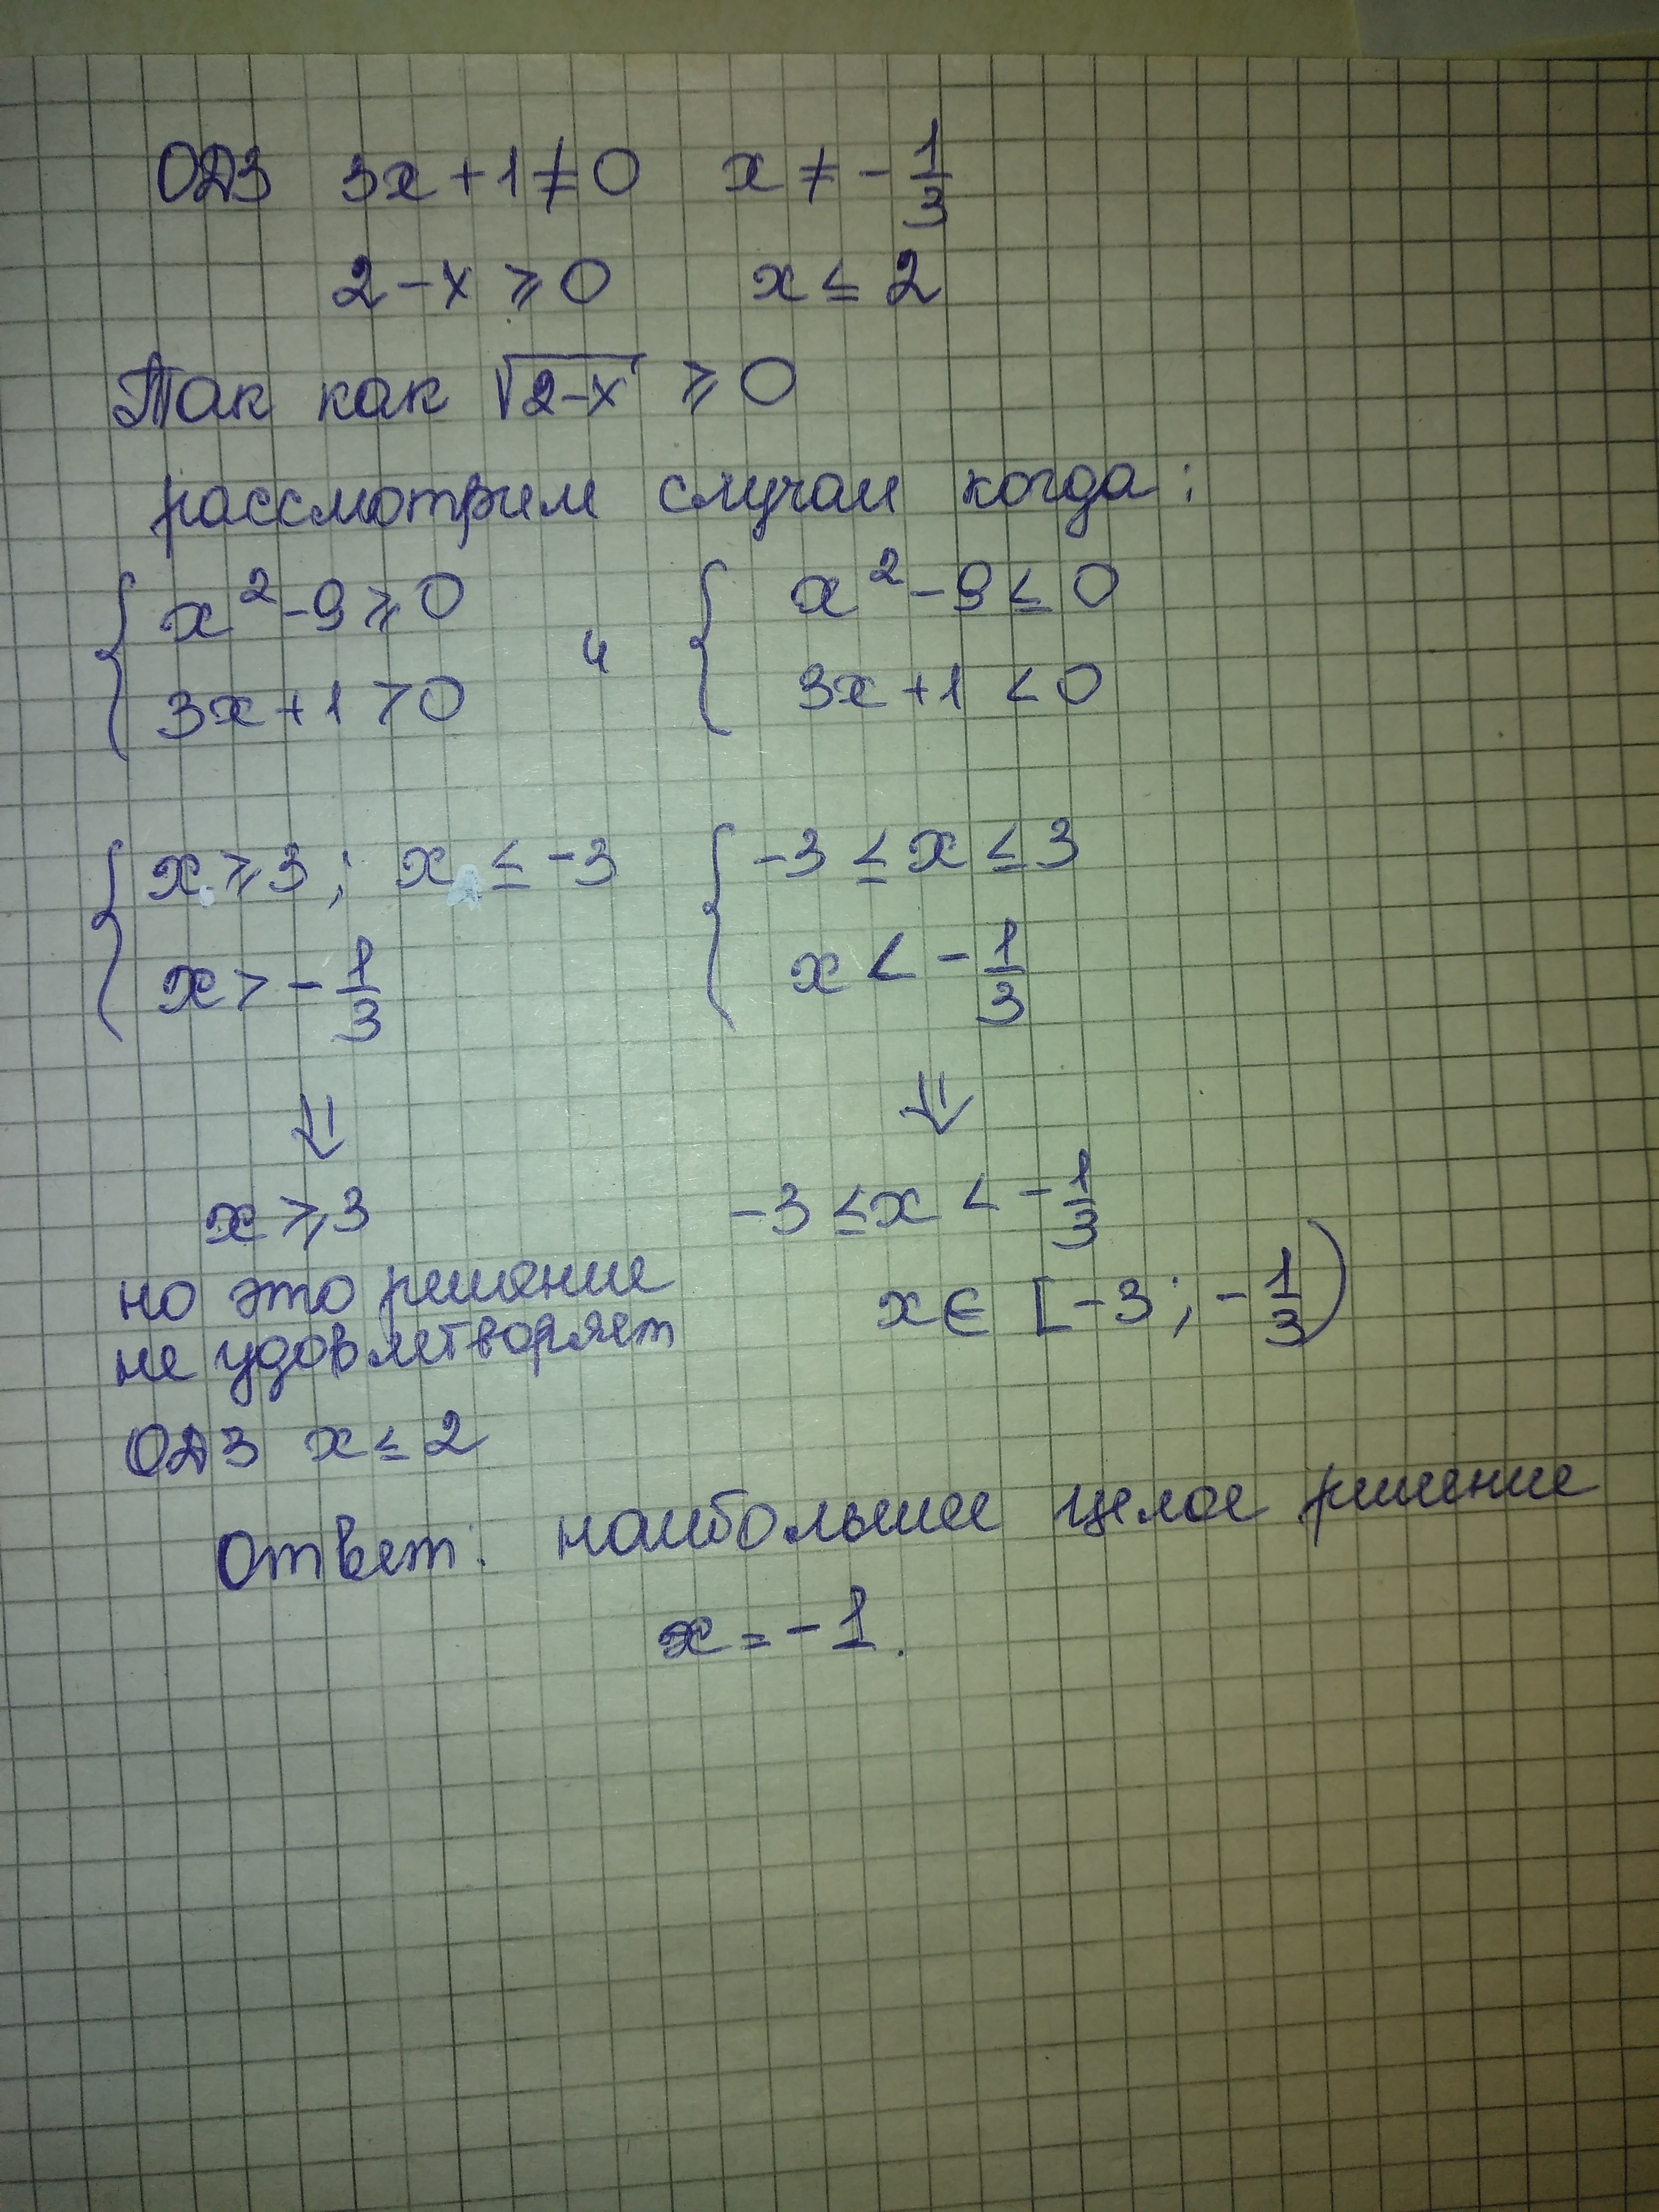 ОДЗ 3x+1≠0 x≠-1/3
2-x ≥0 x≤2
Так как √2-x ≥0
рассмотрим случаи когда:
{ x²-9≥0 и { x²-9≤0
3x+1>0 3x+1<0
{ x≥3; x≤-3 { -3≤x≤3
x>-1/3 x<-1/3
⇓ ⇓
x≥3 -3≤x<-1/3
но это решение x∈[-3;-1/3)
не удовлетворяет
ОДЗ x≤2
Ответ: наибольшее целое решение
x=-1.